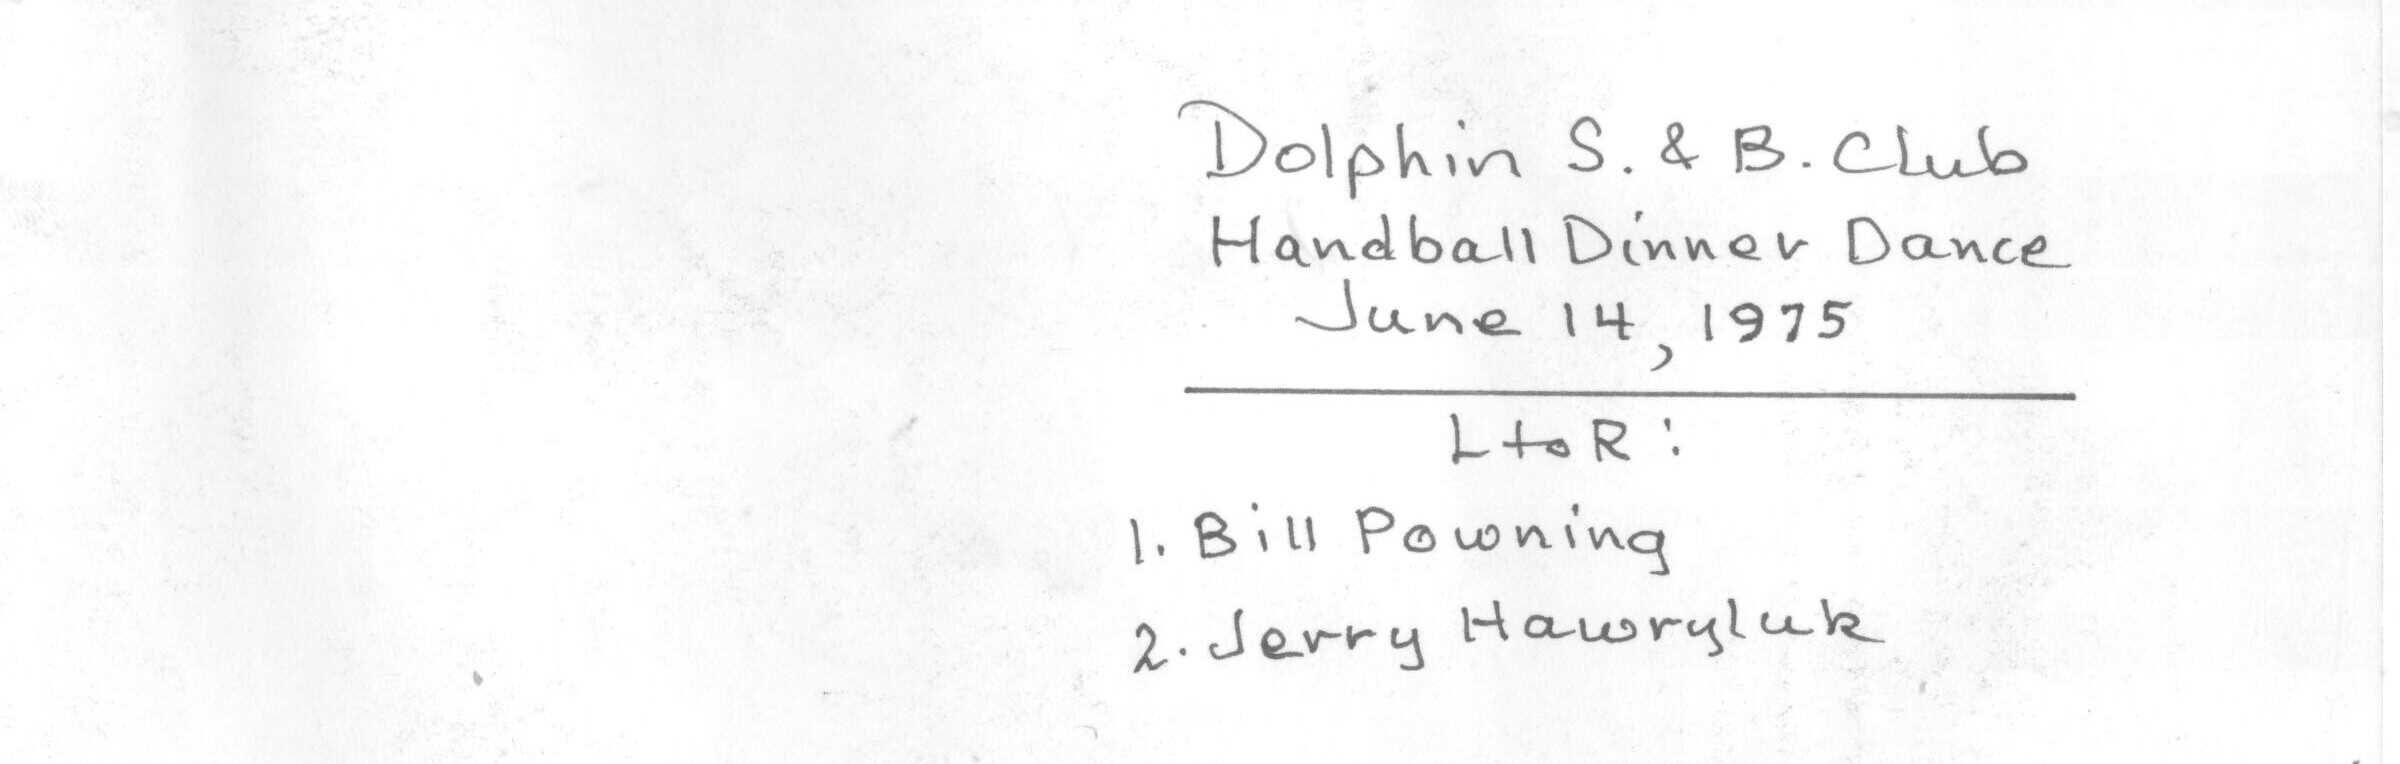 Dolphin S. & B. Club
Handball Dinner Dance
June 14, 1975
L to R:
1. Bill Powning
2. Jerry Hawryluk